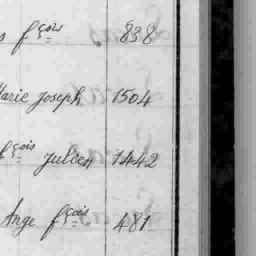 s fçois 838
Marie joseph 1504
fçois julien 1442
Ange fçois 481